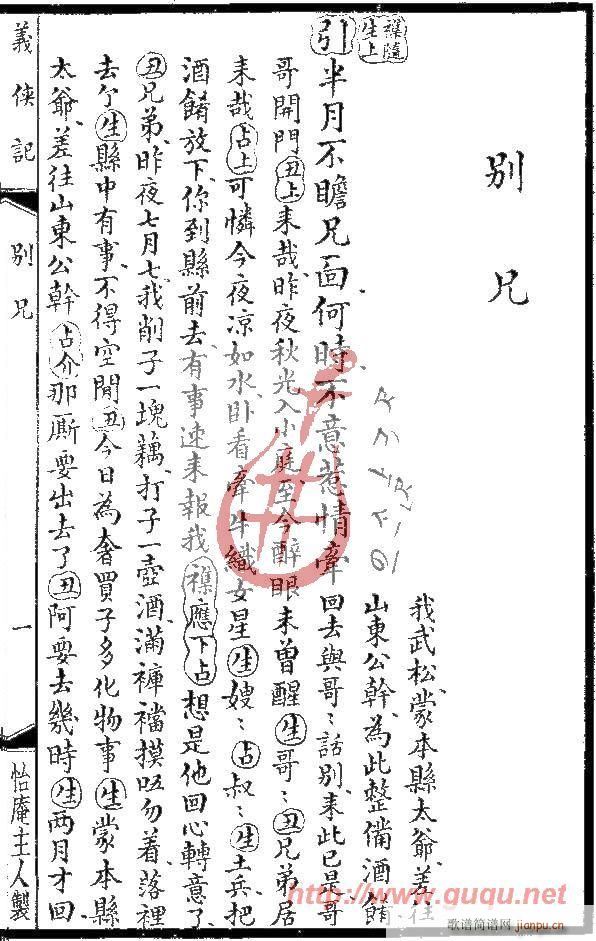 別兄
我武松、蒙本縣太爺、差往
山東公幹、為此整備酒餚
雜隨
生上
引半月不瞻兄面何時、不意惹情牽回去與哥〻話別、來此已是哥
哥開門丑上來哉、昨夜秋光入小庭、至今醉眼未曾醒生哥〻丑兄弟居
來哉占上可憐今夜涼如水、卧看牽牛織女星生嫂〻占叔〻生土兵、把
酒餚放下、你到縣前去、有事速來報我雜應下占想是他回心轉意了
丑兄弟、昨夜七月七、我削子一塊藕、打子一壺酒、滿褲襠摸唔勿着、落裡
去个生縣中有事、不得空閒丑今日為奢買子多化物事生蒙本縣
太爺、差往山東公幹占介那厮要出去了丑阿要去幾時生兩月才回
義俠記
別兄
一
怡庵主人製
http://www.guqu.net
歌谱简谱网
jianpu.cn